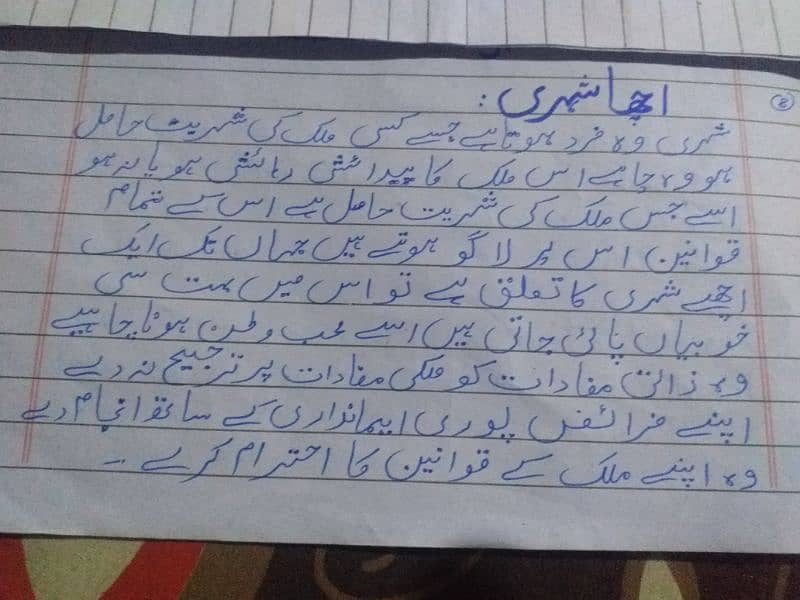 اچھا شہری :
شہری وہ فرد ہوتا ہے جسے کسی ملک کی شہریت حاصل
ہو وہ چاہے اس ملک کا پیدائشی رہائشی ہو یا نہ ہو
اسے جس ملک کی شہریت حاصل ہے اس کے تمام
قوانین اس پر لاگو ہوتے ہیں جہاں تک ایک
اچھے شہری کا تعلق ہے تو اس میں بہت سی
خوبیاں پائی جاتی ہیں اسے محب وطن ہونا چاہیے
وہ ذاتی مفادات کو ملکی مفادات پر ترجیح نہ دے
اپنے فرائض پوری ایمانداری کے ساتھ انجام دے
وہ اپنے ملک کے قوانین کا احترام کرے ۔۔